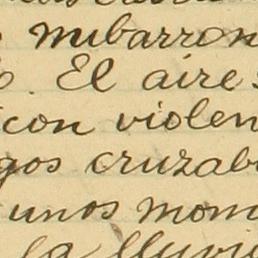 nubarron
. El aire
con violen
gos cruzab
unos mom
la lluvi